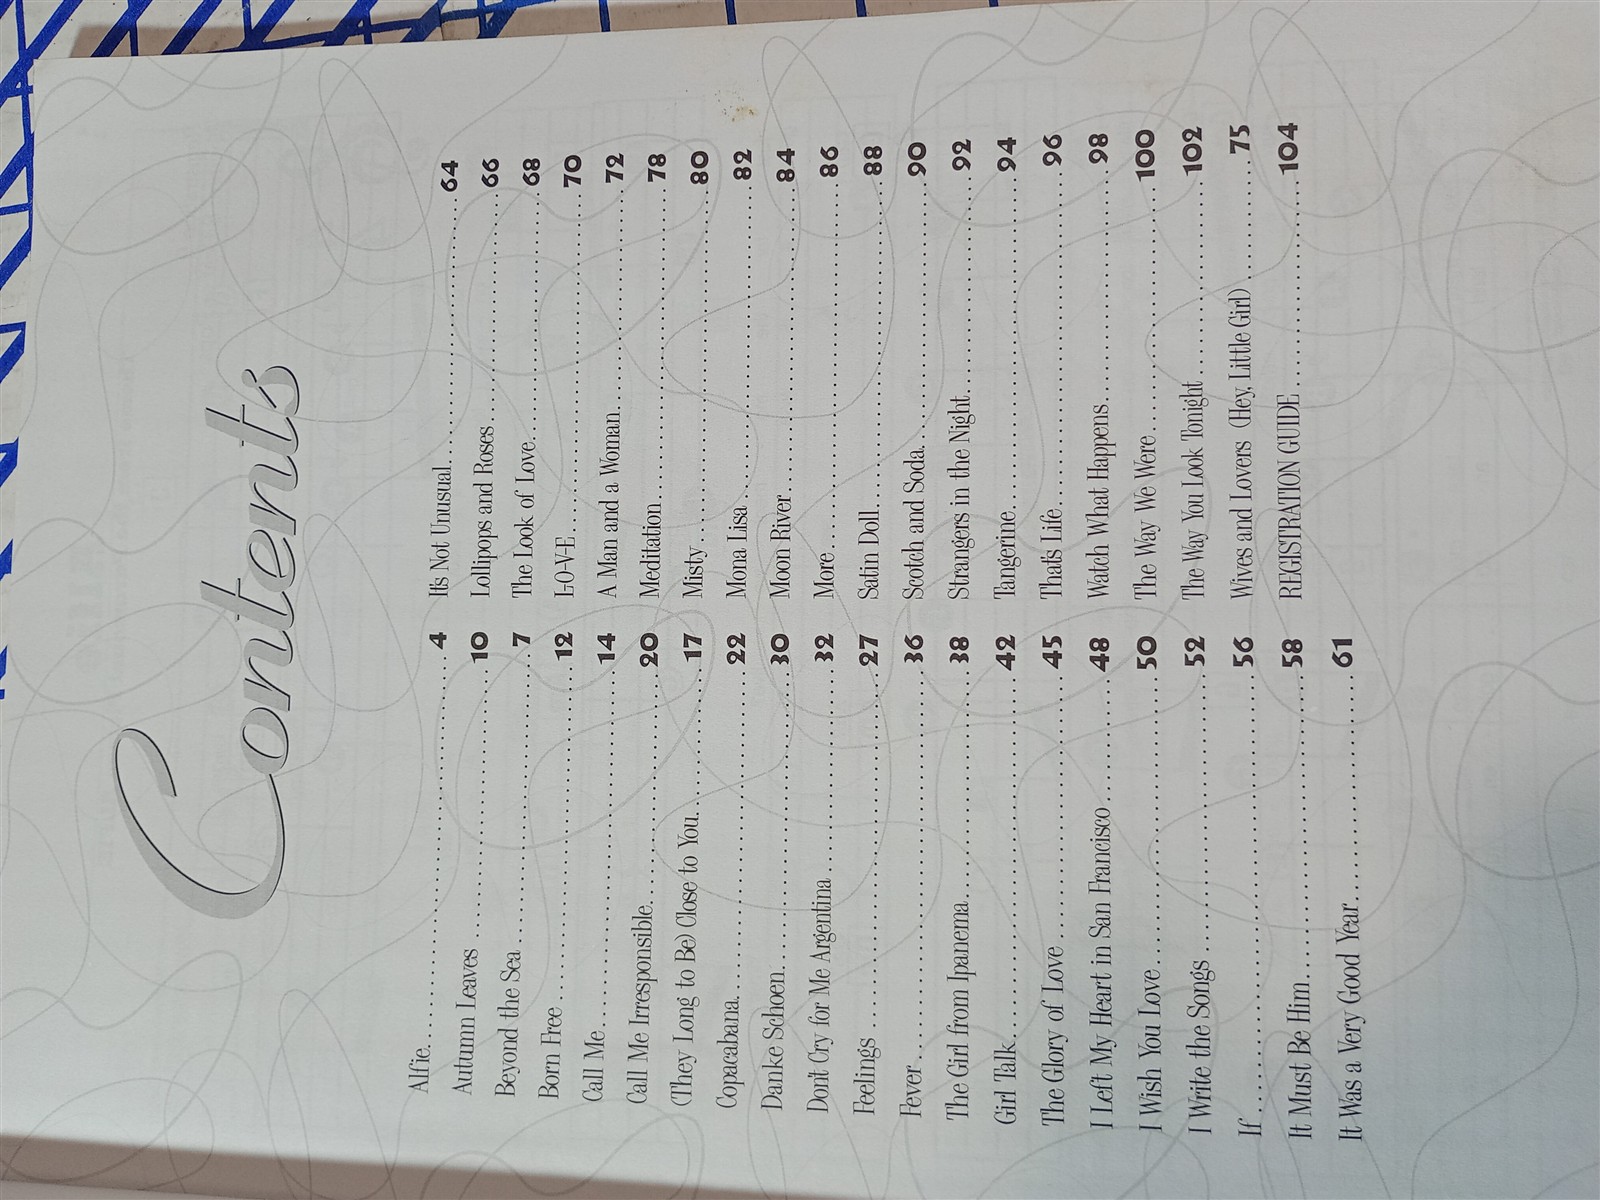 Contents
Alfie 4
Autumn Leaves 10
Beyond the Sea 7
Born Free 12
Call Me 14
Call Me Irresponsible 20
(They Long to Be) Close to You 17
Copacabana 22
Danke Schoen 30
Don't Cry for Me Argentina 32
Feelings 27
Fever 36
The Girl from Ipanema 38
Girl Talk 42
The Glory of Love 45
I Left My Heart in San Francisco 48
I Wish You Love 50
I Write the Songs 52
If 56
It Must Be Him 58
It Was a Very Good Year 61
It's Not Unusual 64
Lollipops and Roses 66
The Look of Love 68
L-O-V-E 70
A Man and a Woman 72
Meditation 78
Misty 80
Mona Lisa 82
Moon River 84
More 86
Satin Doll 88
Scotch and Soda 90
Strangers in the Night 92
Tangerine 94
That's Life 96
Watch What Happens 98
The Way We Were 100
The Way You Look Tonight 102
Wives and Lovers (Hey, Little Girl) 75
REGISTRATION GUIDE 104